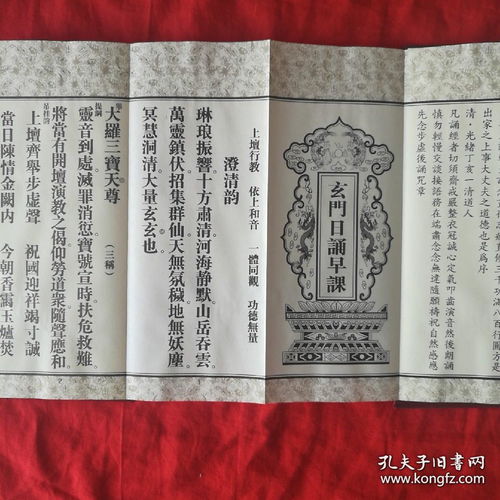 出家之上事大丈夫之道德也是為序
清·光緒丁亥一清道人
凡誦經者切須齋戒嚴整衣冠誠心定氣叩齒演音然後朗誦
慎勿輕慢交談接語務在端肅念念無違隨願禱祝自然感應
先念步虛後誦咒章
玄門日誦早課
上壇行教 依上和音 一體同觀 功德無量
澄清韵
琳琅振響十方肅清河海靜默山岳吞雲
萬靈鎮伏招集群仙天無氛穢地無妖塵
冥慧洞清大量玄玄也
提綱
大羅三寶天尊(三稱)
靈音到處滅罪消愆寶號宣時扶危救難
將當有開壇演教之偈仰勞道衆隨聲應和
吊挂韵
上壇齊舉步虛聲 祝國迎祥竭寸誠
當日陳情金闕內 今朝香靄玉爐焚
孔夫子旧书网
www.kongfz.com